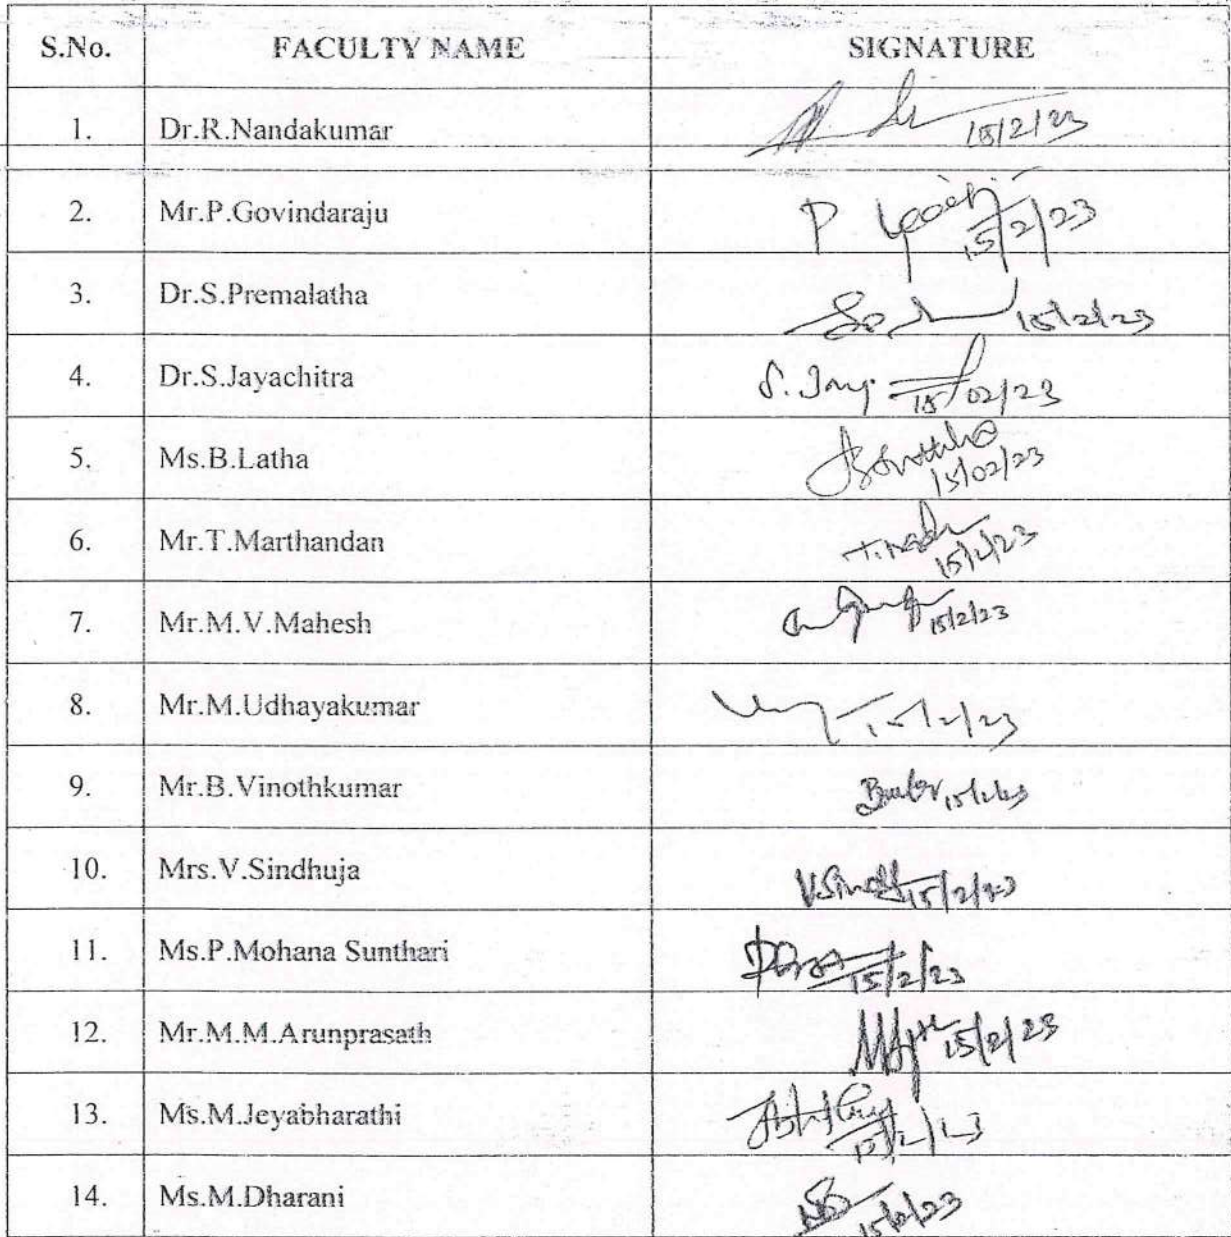 S.No. FACULTY NAME SIGNATURE
1. Dr.R.Nandakumar 15/2/23
2. Mr.P.Govindaraju P 15/2/23
3. Dr.S.Premalatha 15/2/23
4. Dr.S.Jayachitra S. Jay 15/02/23
5. Ms.B.Latha 15/02/23
6. Mr.T.Marthandan 15/2/23
7. Mr.M.V.Mahesh 15/2/23
8. Mr.M.Udhayakumar 15/2/23
9. Mr.B.Vinothkumar 15/2/23
10. Mrs.V.Sindhuja 15/2/23
11. Ms.P.Mohana Sunthari 15/2/23
12. Mr.M.M.Arunprasath 15/2/23
13. Ms.M.Jeyabharathi 15/2/23
14. Ms.M.Dharani 15/2/23